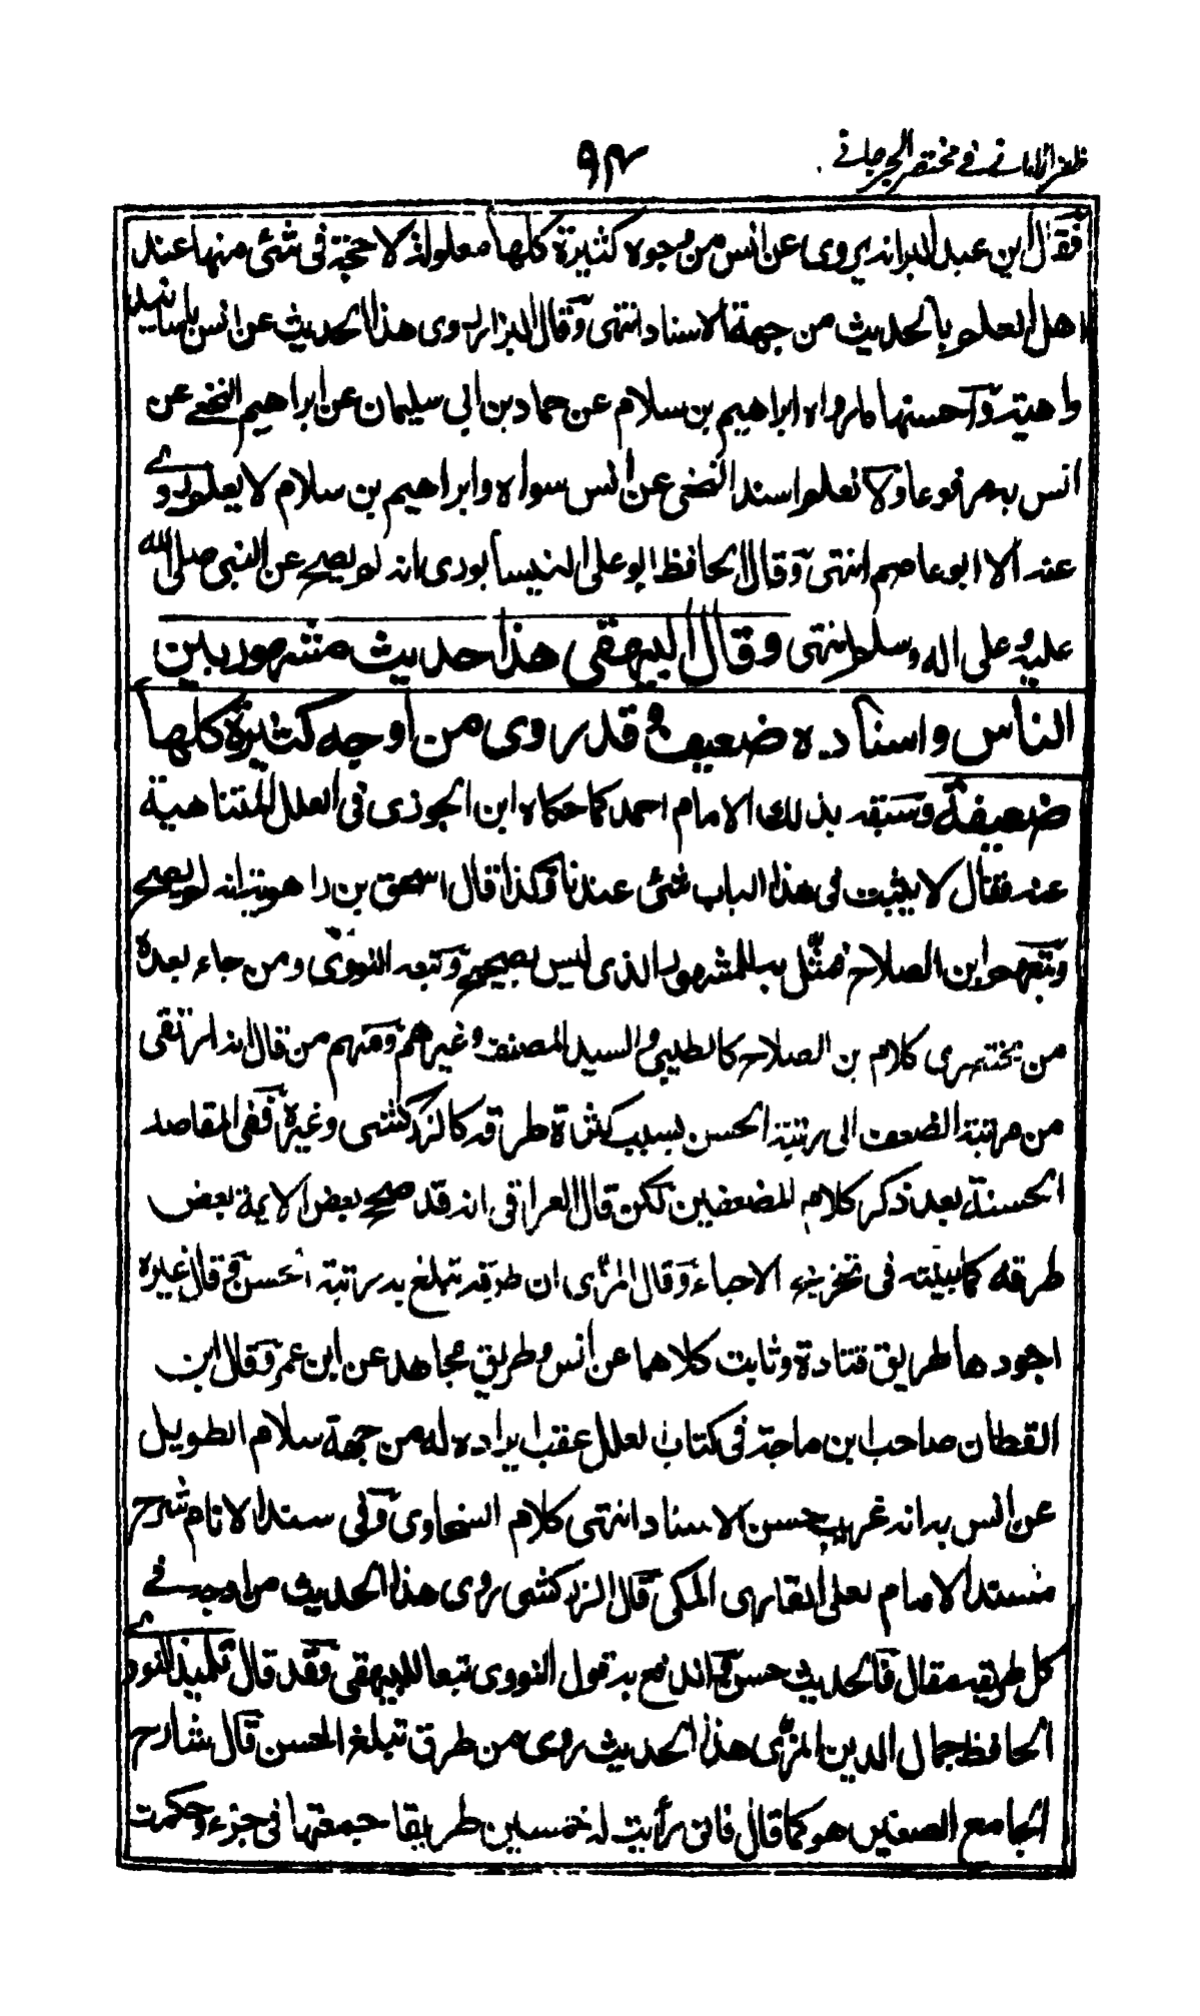 ظفر الأماني في مختصر الجرجاني
٩٣
فقال ابن عبد البر انه يروى عن انس من وجوه كثيرة كلها معلولة لا حجة فى شئى منها عند
اهل العلم بالحديث من جهة الاسناد انتهى وقال البزار روى هذا الحديث عن انس باسانيد
واهية واحسنها ما رواه ابراهيم بن سلام عن حماد بن ابى سليمان عن ابراهيم النخعي عن
انس به مرفوعا ولا نعلم اسند النخعى عن انس سواه وابراهيم بن سلام لا يعلم روى
عنه الا ابو عاصم انتهى وقال الحافظ ابو على النيسابورى انه لم يصح عن النبى صلى الله
عليه وعلى اله وسلم انتهى وقال البيهقى هذا حديث مشهور بين
الناس واسناده ضعيف وقد روى من اوجه كثيرة كلها
ضعيفة وسبقه بذلك الامام احمد كما حكاه ابن الجوزى فى العلل المتناهية
عنه فقال لا يثبت فى هذا الباب شئى عندنا وكذا قال اسحق بن راهويه انه لم يصح
وتبعهم ابن الصلاح فمثل به للمشهور الذى ليس بصحيح وتبعه النووى ومن جاء بعده
من مختصرى كلام بن الصلاح كالطيبى والسيد المصنف وغيرهم ومنهم من قال انه ارتقى
من مرتبة الضعف الى رتبة الحسن بسبب كثرة طرقه كالزركشى وغيره ففى المقاصد
الحسنة بعد ذكر كلام المضعفين لكن قال العراقى انه قد صحح بعض الايمة بعض
طرقه كما بينته فى تخريج الاحياء وقال المزى ان طرقه تبلغ به رتبة الحسن وقال غيره
اجودها طريق قتادة وثابت كلاهما عن انس وطريق مجاهد عن ابن عمر وقال ابن
القطان صاحب ابن ماجة فى كتاب العلل عقب ايراده له من جهة سلام الطويل
عن انس به انه غريب حسن الاسناد انتهى كلام السخاوى وفى سند الانام شرح
مسند الامام لعلى القارى المكى قال الزركشى روى هذا الحديث من اوجه فى
كل طريقه مقال فالحديث حسن وبه اندفع به قول النووى تبعا للبيهقى وقد قال تلميذ النووى
الحافظ جمال الدين المزى هذا الحديث روى من طرق تبلغ الحسن قال شارح
الجامع الصغير هو كما قال فانى رأيت له خمسين طريقا جمعتها فى جزء وحكمت